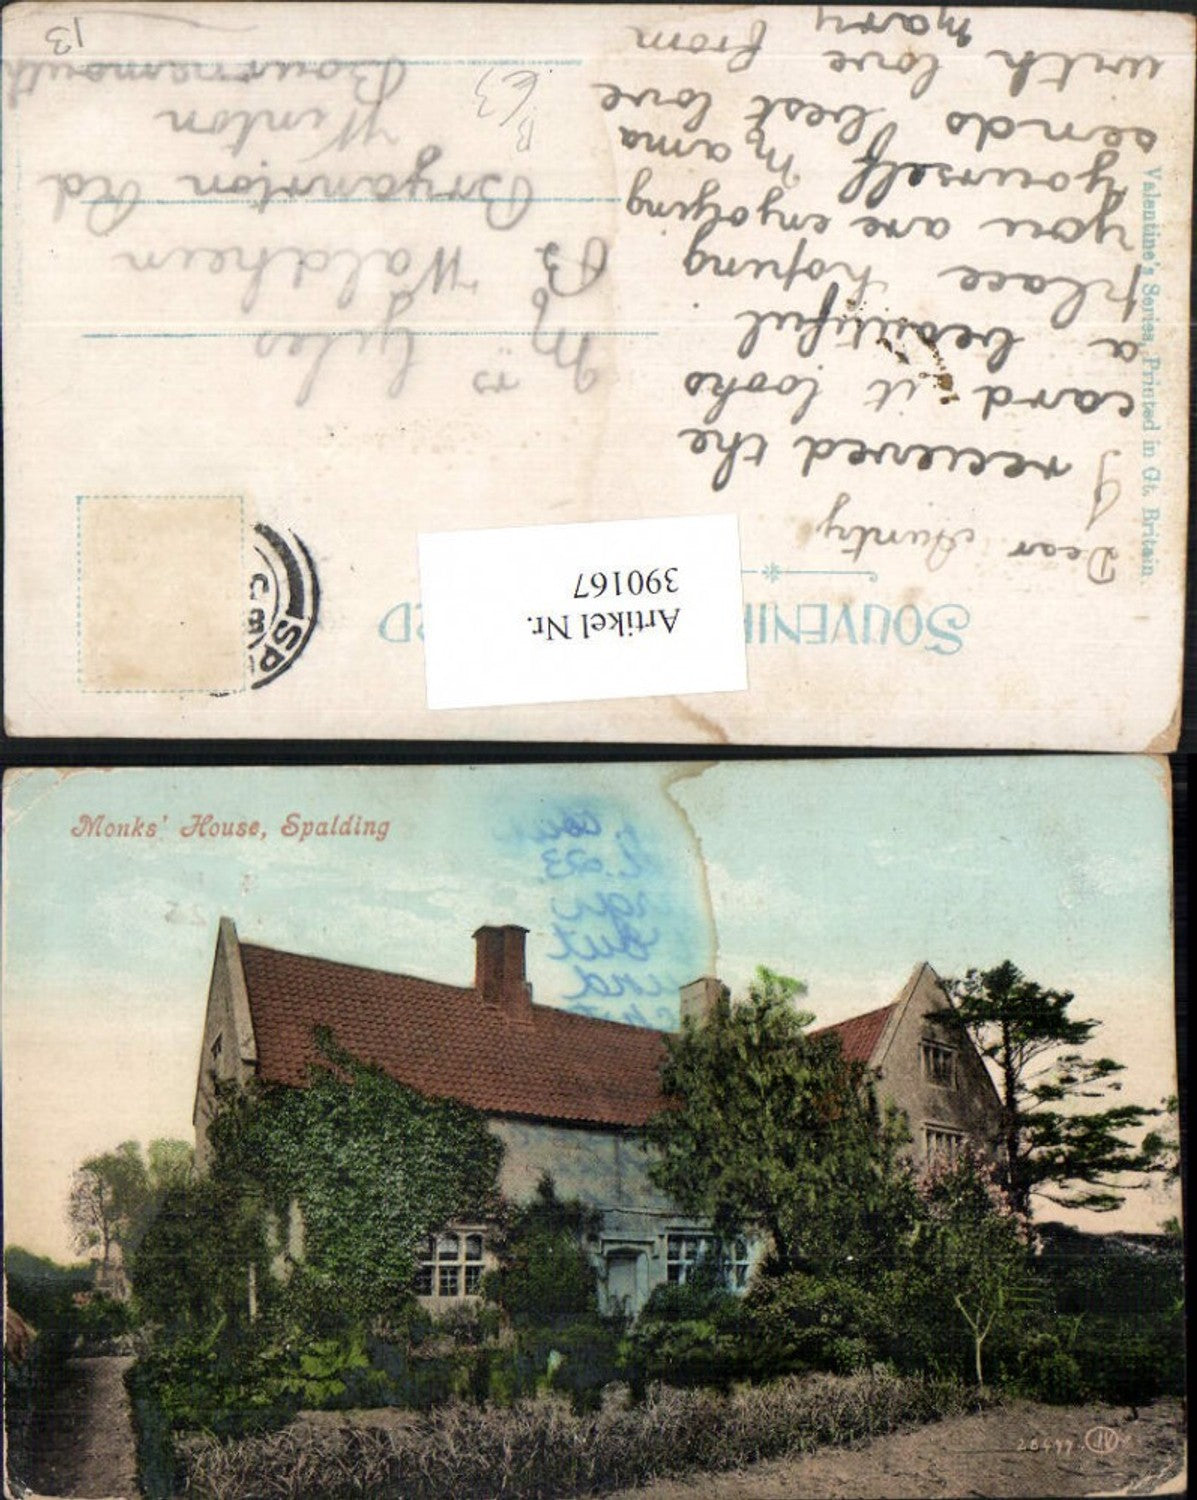 SOUVENI RD
Artikel Nr.
390167
SP
Dear Aunty
I received the
card it looks
a beautiful
place hoping
you are enjoying
yourself Mama
sends best love
with love from
Mary
Mrs Giles
Waldheim
Bryanston Rd
Winton
Bournemouth
13
Valentine's Series, Printed in Gt. Britain.
Monks' House, Spalding